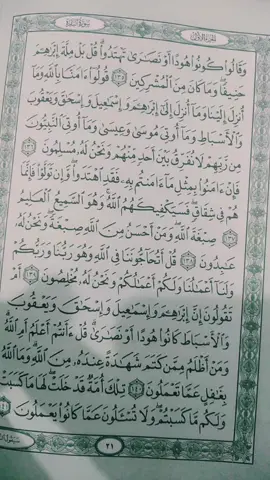 وَقَالُوا۟ كُونُوا۟ هُودًا أَوْ نَصَٰرَىٰ تَهْتَدُوا۟ ۗ قُلْ بَلْ مِلَّةَ إِبْرَٰهِـۧمَ
حَنِيفًا ۖ وَمَا كَانَ مِنَ ٱلْمُشْرِكِينَ ١٣٥ قُولُوٓا۟ ءَامَنَّا بِٱللَّهِ وَمَآ
أُنزِلَ إِلَيْنَا وَمَآ أُنزِلَ إِلَىٰٓ إِبْرَٰهِـۧمَ وَإِسْمَٰعِيلَ وَإِسْحَٰقَ وَيَعْقُوبَ
وَٱلْأَسْبَاطِ وَمَآ أُوتِىَ مُوسَىٰ وَعِيسَىٰ وَمَآ أُوتِىَ ٱلنَّبِيُّونَ
مِن رَّبِّهِمْ لَا نُفَرِّقُ بَيْنَ أَحَدٍ مِّنْهُمْ وَنَحْنُ لَهُۥ مُسْلِمُونَ ١٣٦
فَإِنْ ءَامَنُوا۟ بِمِثْلِ مَآ ءَامَنتُم بِهِۦ فَقَدِ ٱهْتَدَوا۟ ۖ وَّإِن تَوَلَّوْا۟ فَإِنَّمَا
هُمْ فِى شِقَاقٍ ۖ فَسَيَكْفِيكَهُمُ ٱللَّهُ ۚ وَهُوَ ٱلسَّمِيعُ ٱلْعَلِيمُ
١٣٧ صِبْغَةَ ٱللَّهِ ۖ وَمَنْ أَحْسَنُ مِنَ ٱللَّهِ صِبْغَةً ۖ وَنَحْنُ لَهُۥ
عَٰبِدُونَ ١٣٨ قُلْ أَتُحَآجُّونَنَا فِى ٱللَّهِ وَهُوَ رَبُّنَا وَرَبُّكُمْ
وَلَنَآ أَعْمَٰلُنَا وَلَكُمْ أَعْمَٰلُكُمْ وَنَحْنُ لَهُۥ مُخْلِصُونَ ١٣٩ أَمْ
تَقُولُونَ إِنَّ إِبْرَٰهِـۧمَ وَإِسْمَٰعِيلَ وَإِسْحَٰقَ وَيَعْقُوبَ
وَٱلْأَسْبَاطَ كَانُوا۟ هُودًا أَوْ نَصَٰرَىٰ ۗ قُلْ ءَأَنتُمْ أَعْلَمُ أَمِ ٱللَّهُ ۗ
وَمَنْ أَظْلَمُ مِمَّن كَتَمَ شَهَٰدَةً عِندَهُۥ مِنَ ٱللَّهِ ۗ وَمَا ٱللَّهُ
بِغَٰفِلٍ عَمَّا تَعْمَلُونَ ١٤٠ تِلْكَ أُمَّةٌ قَدْ خَلَتْ ۖ لَهَا مَا كَسَبَتْ
وَلَكُم مَّا كَسَبْتُمْ ۖ وَلَا تُسْـَٔلُونَ عَمَّا كَانُوا۟ يَعْمَلُونَ ١٤١
٢١